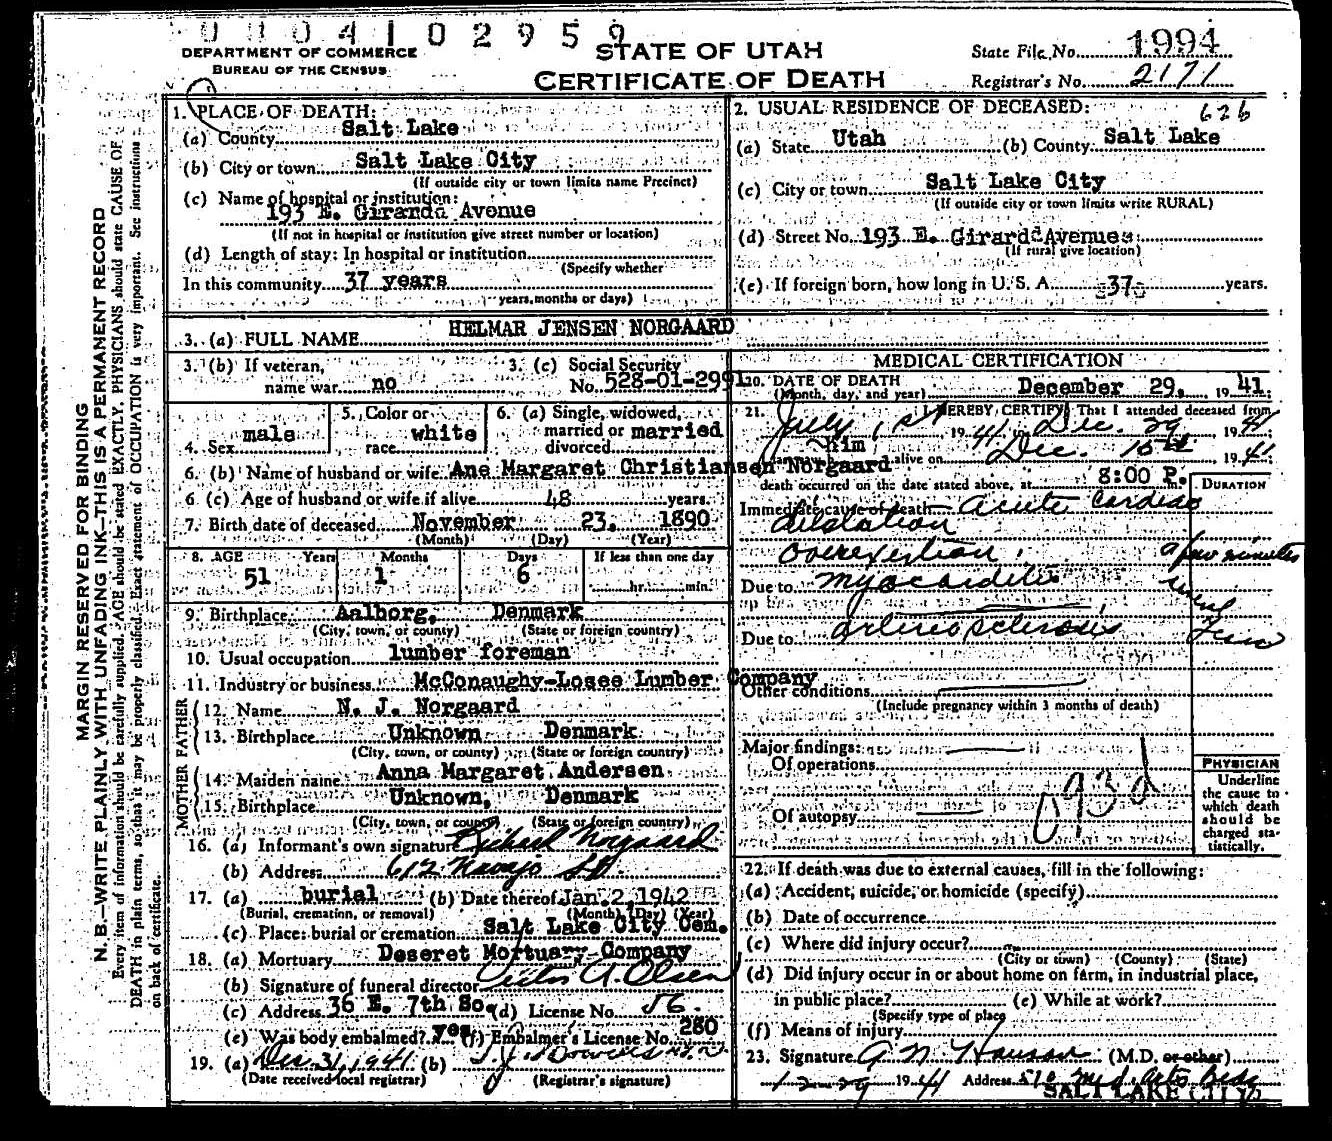 0004102959
DEPARTMENT OF COMMERCE
BUREAU OF THE CENSUS
STATE OF UTAH
CERTIFICATE OF DEATH
State File No. 1994
Registrar's No. 2171
MARGIN RESERVED FOR BINDING
N. B.—WRITE PLAINLY WITH UNFADING INK—THIS IS A PERMANENT RECORD
Every item of information should be carefully supplied. AGE should be stated EXACTLY. PHYSICIANS should state CAUSE OF
DEATH in plain terms, so that it may be properly classified. Exact statement of OCCUPATION is very important. See instructions
on back of certificate.
1. PLACE OF DEATH:
(a) County Salt Lake
(b) City or town Salt Lake City
(If outside city or town limits name Precinct)
(c) Name of hospital or institution:
193 E. Girard Avenue
(If not in hospital or institution give street number or location)
(d) Length of stay: In hospital or institution
(Specify whether
In this community 37 years
years, months or days)
2. USUAL RESIDENCE OF DECEASED: 626
(a) State Utah (b) County Salt Lake
(c) City or town Salt Lake City
(If outside city or town limits write RURAL)
(d) Street No. 193 E. Girard Avenue
(If rural give location)
(e) If foreign born, how long in U. S. A. 37 years.
3. (a) FULL NAME HELMAR JENSEN NORGAARD
3. (b) If veteran,
name war no
3. (c) Social Security
No. 528-01-2991
4. Sex male
5. Color or
race white
6. (a) Single, widowed,
married or married
divorced
6. (b) Name of husband or wife Ane Margaret Christiansen Norgaard
6. (c) Age of husband or wife if alive 48 years.
7. Birth date of deceased November 23, 1890
(Month) (Day) (Year)
8. AGE Years Months Days If less than one day
51 1 6 hr. min.
9. Birthplace Aalborg, Denmark
(City, town, or county) (State or foreign country)
10. Usual occupation lumber foreman
11. Industry or business McConaughy-Losee Lumber Company
FATHER
12. Name N. J. Norgaard
13. Birthplace Unknown Denmark
(City, town, or county) (State or foreign country)
MOTHER
14. Maiden name Anna Margaret Andersen
15. Birthplace Unknown, Denmark
(City, town, or county) (State or foreign country)
16. (a) Informant's own signature Richard Norgaard
(b) Address 612 Navajo St.
17. (a) burial (b) Date thereof Jan. 2, 1942
(Burial, cremation, or removal) (Month) (Day) (Year)
(c) Place: burial or cremation Salt Lake City Cem.
18. (a) Mortuary Deseret Mortuary Company
(b) Signature of funeral director A. Olsen
(c) Address 36 E. 7th So. (d) License No. 56.
(e) Was body embalmed? yes (f) Embalmer's License No. 280
19. (a) Dec. 31, 1941 (b)
(Date received local registrar) (Registrar's signature)
MEDICAL CERTIFICATION
20. DATE OF DEATH
(Month, day, and year) December 29, 1941.
21. I HEREBY CERTIFY, That I attended deceased from
July 1st 1941 Dec. 29 1941
him alive on Dec. 15th 1941
death occurred on the date stated above, at 8:00 P.
DURATION
Immediate cause of death Acute Cardiac
dilatation
overexertion. a few minutes
Due to myocarditis several
Due to arteriosclerosis years
Other conditions
(Include pregnancy within 3 months of death)
Major findings:
Of operations
Of autopsy
093d
PHYSICIAN
Underline
the cause to
which death
should be
charged sta-
tistically.
22. If death was due to external causes, fill in the following:
(a) Accident, suicide, or homicide (specify)
(b) Date of occurrence
(c) Where did injury occur?
(City or town) (County) (State)
(d) Did injury occur in or about home on farm, in industrial place,
in public place? (e) While at work?
(Specify type of place
(f) Means of injury
23. Signature A. N. Hanson (M.D. or other)
12-29 1941 Address 510 Med. Arts Bldg
SALT LAKE CITY